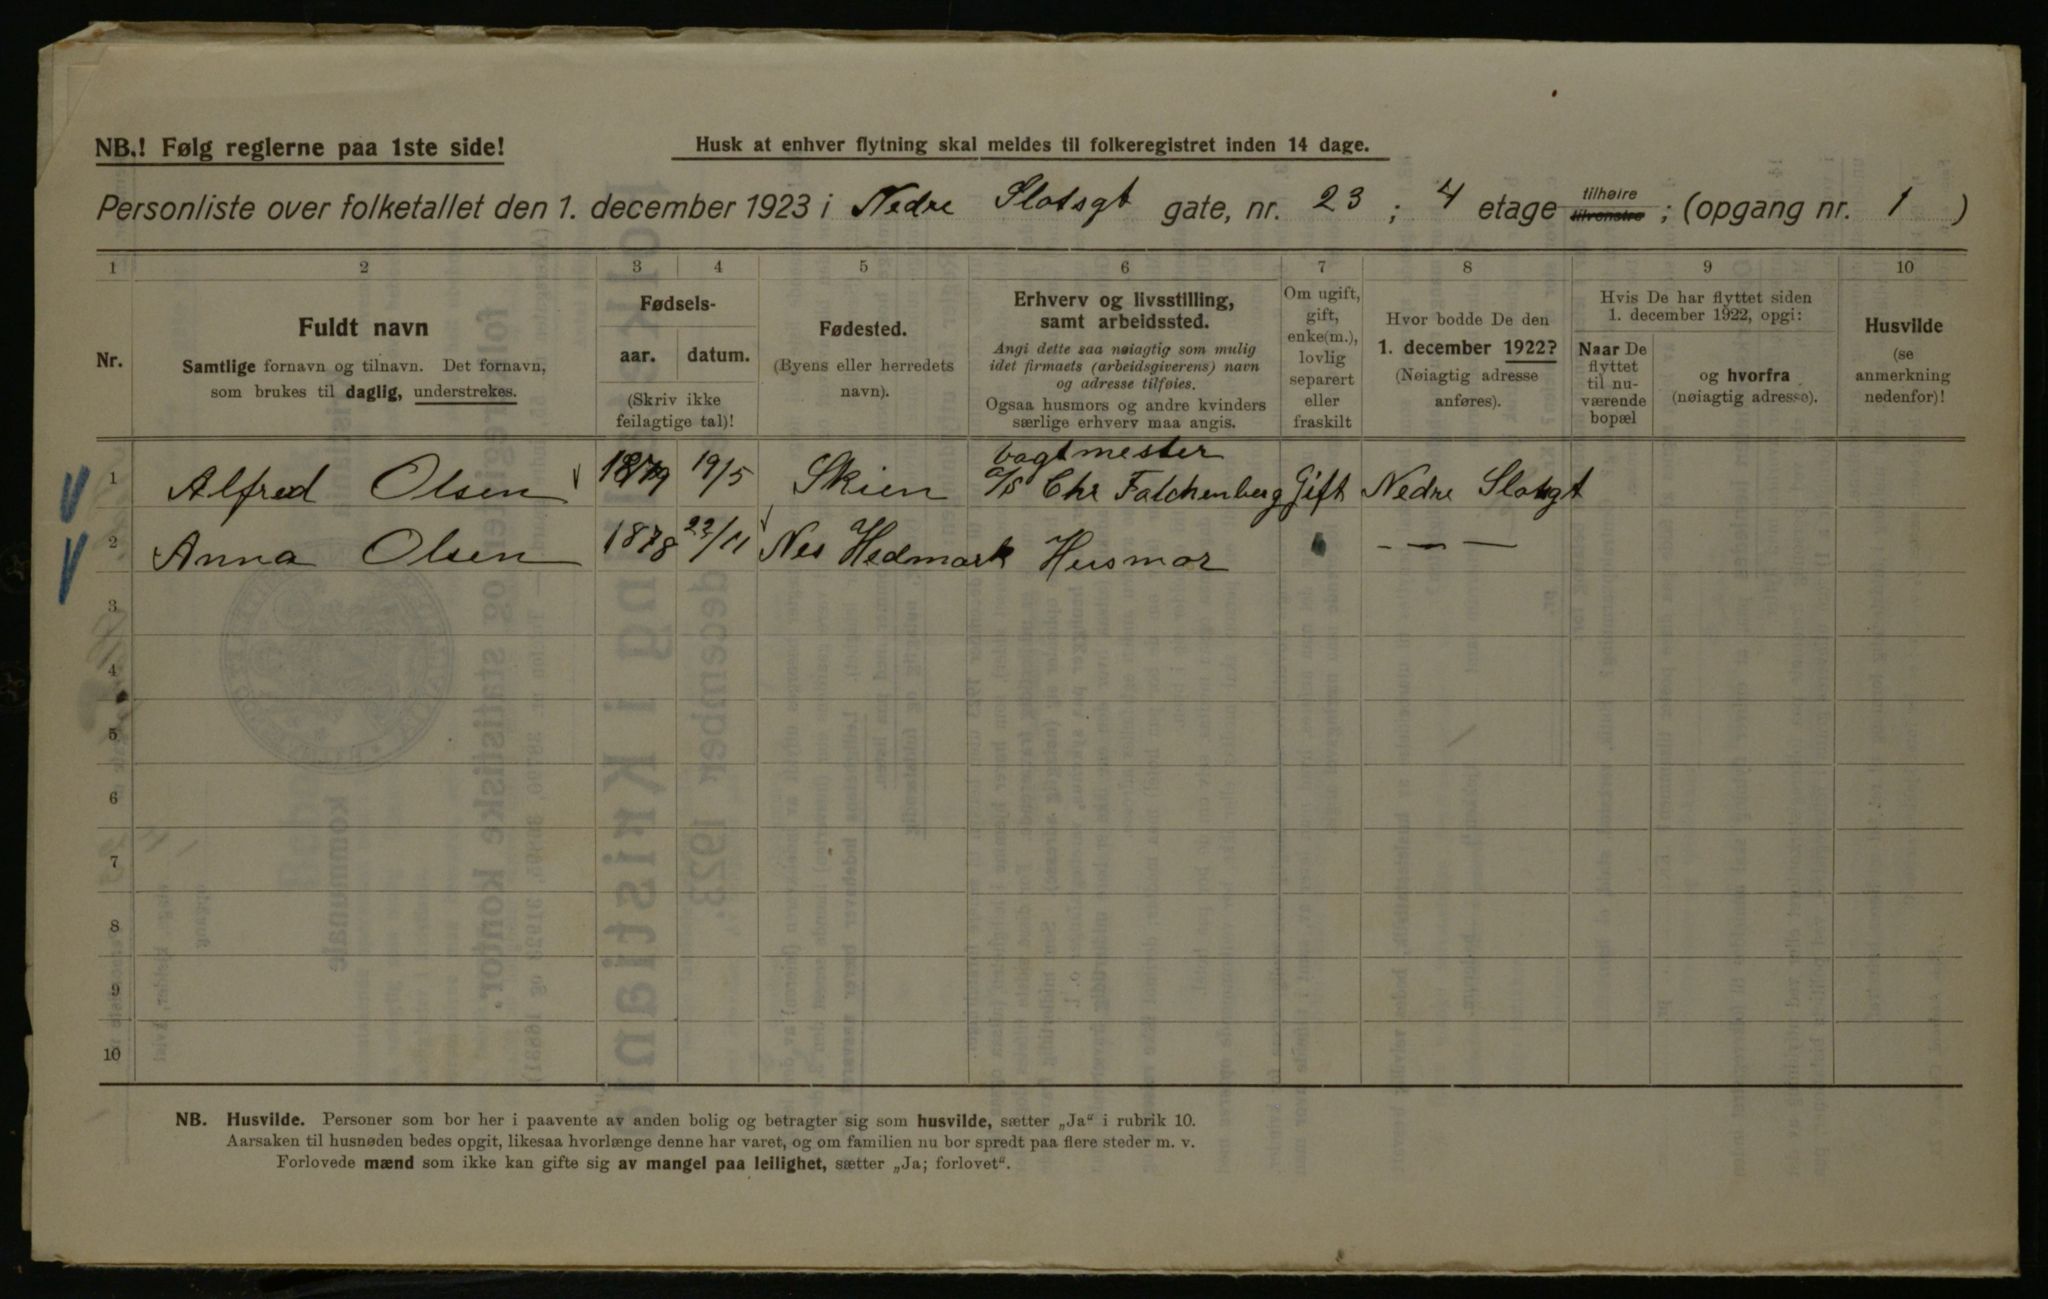 NB.! Følg reglerne paa 1ste side!
Husk at enhver flytning skal meldes til folkeregistret inden 14 dage.
Personliste over folketallet den 1. december 1923 i Nedre Slotsgt gate, nr. 23 ; 4 etage tilhøire tilvenstre ; (opgang nr. 1 )
1 2 3 4 5 6 7 8 9 10
Nr.
Fuldt navn
Samtlige fornavn og tilnavn. Det fornavn,
som brukes til daglig, understrekes.
Fødsels-
aar. datum.
(Skriv ikke
feilagtige tal)!
Fødested.
(Byens eller herredets
navn).
Erhverv og livsstilling,
samt arbeidssted.
Angi dette saa nøiagtig som mulig
idet firmaets (arbeidsgiverens) navn
og adresse tilføies.
Ogsaa husmors og andre kvinders
særlige erhverv maa angis.
Om ugift,
gift,
enke(m.),
lovlig
separert
eller
fraskilt
Hvor bodde De den
1. december 1922?
(Nøiagtig adresse
anføres).
Hvis De har flyttet siden
1. december 1922, opgi:
Naar De
flyttet
til nu-
værende
bopæl
og hvorfra
(nøiagtig adresse).
Husvilde
(se
anmerkning
nedenfor)!
vagtmester
1 Alfred Olsen 1879 19/5 Skien a/s Chr Falchenberg Gift Nedre Slotsgt
2 Anna Olsen 1878 22/11 Nes Hedmark Husmor " — — —
3
4
5
6
7
8
9
10
NB. Husvilde. Personer som bor her i paavente av anden bolig og betragter sig som husvilde, sætter „Ja“ i rubrik 10.
Aarsaken til husnøden bedes opgit, likesaa hvorlænge denne har varet, og om familien nu bor spredt paa flere steder m. v.
Forlovede mænd som ikke kan gifte sig av mangel paa leilighet, sætter „Ja; forlovet“.